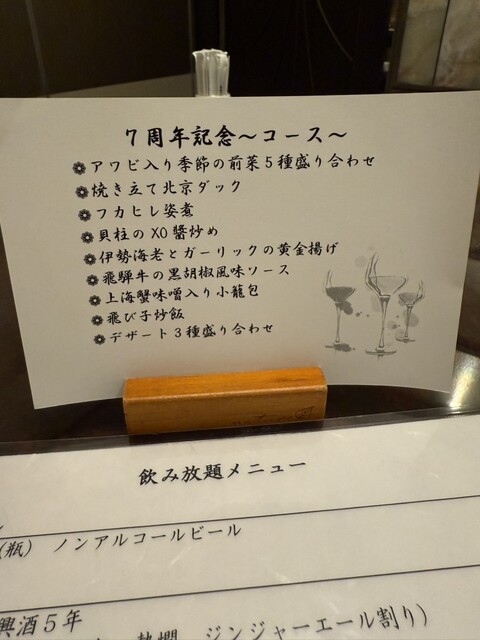 ７周年記念～コース～
アワビ入り季節の前菜５種盛り合わせ
焼き立て北京ダック
フカヒレ姿煮
貝柱のXO醬炒め
伊勢海老とガーリックの黄金揚げ
飛騨牛の黒胡椒風味ソース
上海蟹味噌入り小籠包
飛び子炒飯
デザート３種盛り合わせ
飲み放題メニュー
(瓶) ノンアルコールビール
興酒５年
熱燗 ジンジャーエール割り)